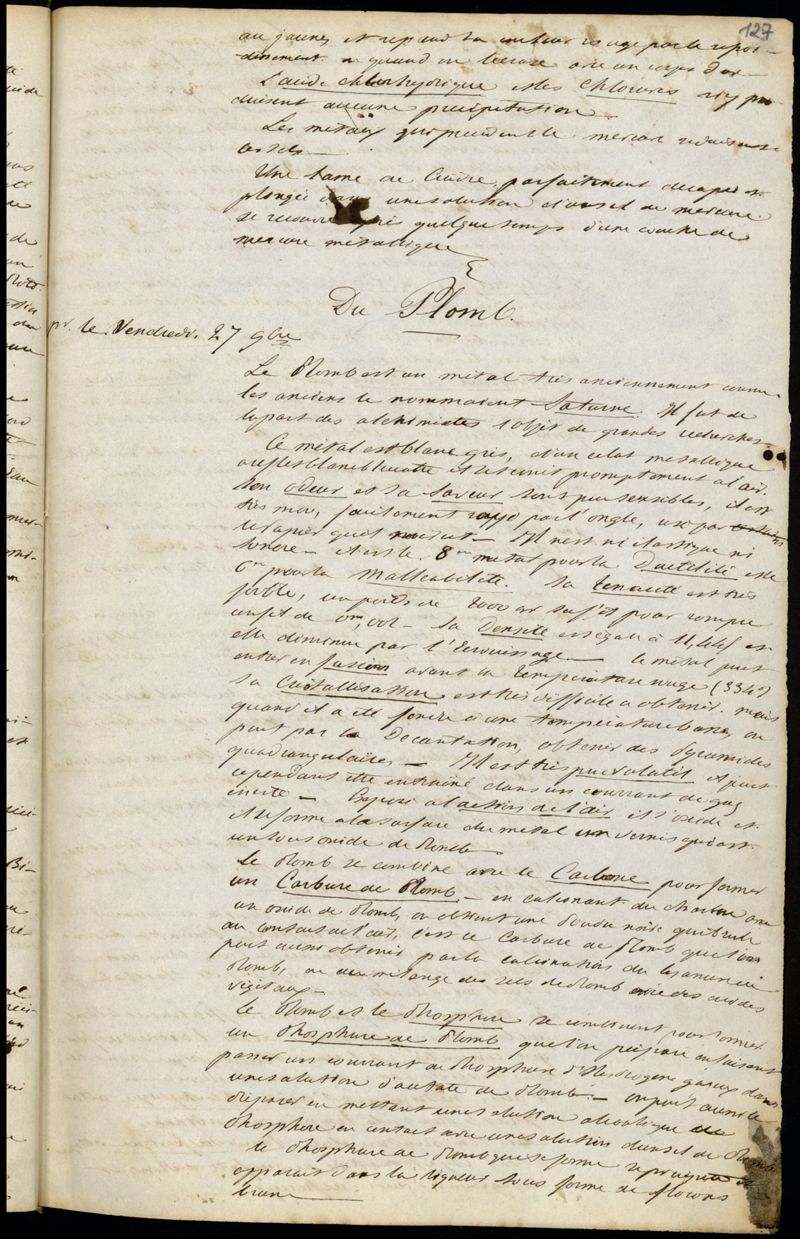 127
au jaune, et reprend sa couleur rouge par le refroi-
dissement ou quand on l'écrase avec un corps dur
L'acide chlorhydrique et les Chlorures n'y pro
duisent aucune précipitation.
Les métaux qui précèdent le mercure réduisent
les sels —
Une lame de Cuivre, parfaitement décapée et
plongée dans une solution d'un sel de mercure.
se recouvre après quelque temps d'une couche de
mercure métallique
Du Plomb.
pr. le Vendredi. 27 9bre
Le Plomb est un métal très anciennement connu
les anciens le nommaient Saturne. Il fut de
la part des alchimistes l'objet de grandes recherches
Ce métal est blanc gris, d'un éclat métallique
à reflet blanc bleuâtre et se ternit promptement à l'air.
Son odeur et sa saveur sont peu sensibles, il est
très mou, facilement rayé par l'ongle, use par
le papier qu'il noircit — Il n'est ni élastique ni
sonore — et est le 8me métal pour la Ductilité et le
6me pour la malléabilité. Sa tenacité est très
faible, un poids de 2000 gr suffit pour rompre
un fil de 0m,002 — Sa Densité est égale à 11,445 et
elle diminue par l'écrouissage — le métal peut
entrer en fusion avant la température rouge (334°)
Sa Cristallisation est très difficile à obtenir. mais
quand il a été fondu à une température basse, on
peut par la Décantation, obtenir des Pyramides
quadrangulaires, — Il est très peu volatil et peut
cependant être entraîné dans un courrant de gaz
inerte — Exposé à l'action de l'air il s'oxide et
et se forme à la surface du métal un vernis qui est
un sous oxide de Plomb
Le Plomb se combine avec le Carbone pour former
un Carbure de Plomb — en calcinant du charbon avec
un oxide de Plomb, on obtient une Poudre noire qui brule
au contact de l'air, c'est ce Carbure de Plomb que l'on
peut aussi obtenir par la calcination du cyanure de
Plomb, ou du mélange des sels de Plomb avec des acides
végétaux —
Le Plomb et le Phosphore se combinent pour former
un Phosphure de Plomb que l'on prépare en faisant
passer un courrant de Phosphure d'Hydrogène gazeux dans
une solution d'acétate de Plomb. — on peut aussi le
préparer en mettant une solution alcoolique de
Phosphore en contact avec une solution d'un sel de Plomb
le Phosphure de Plomb qui se forme se précipite et
apparait dans la liqueur sous forme de flocons
bruns —